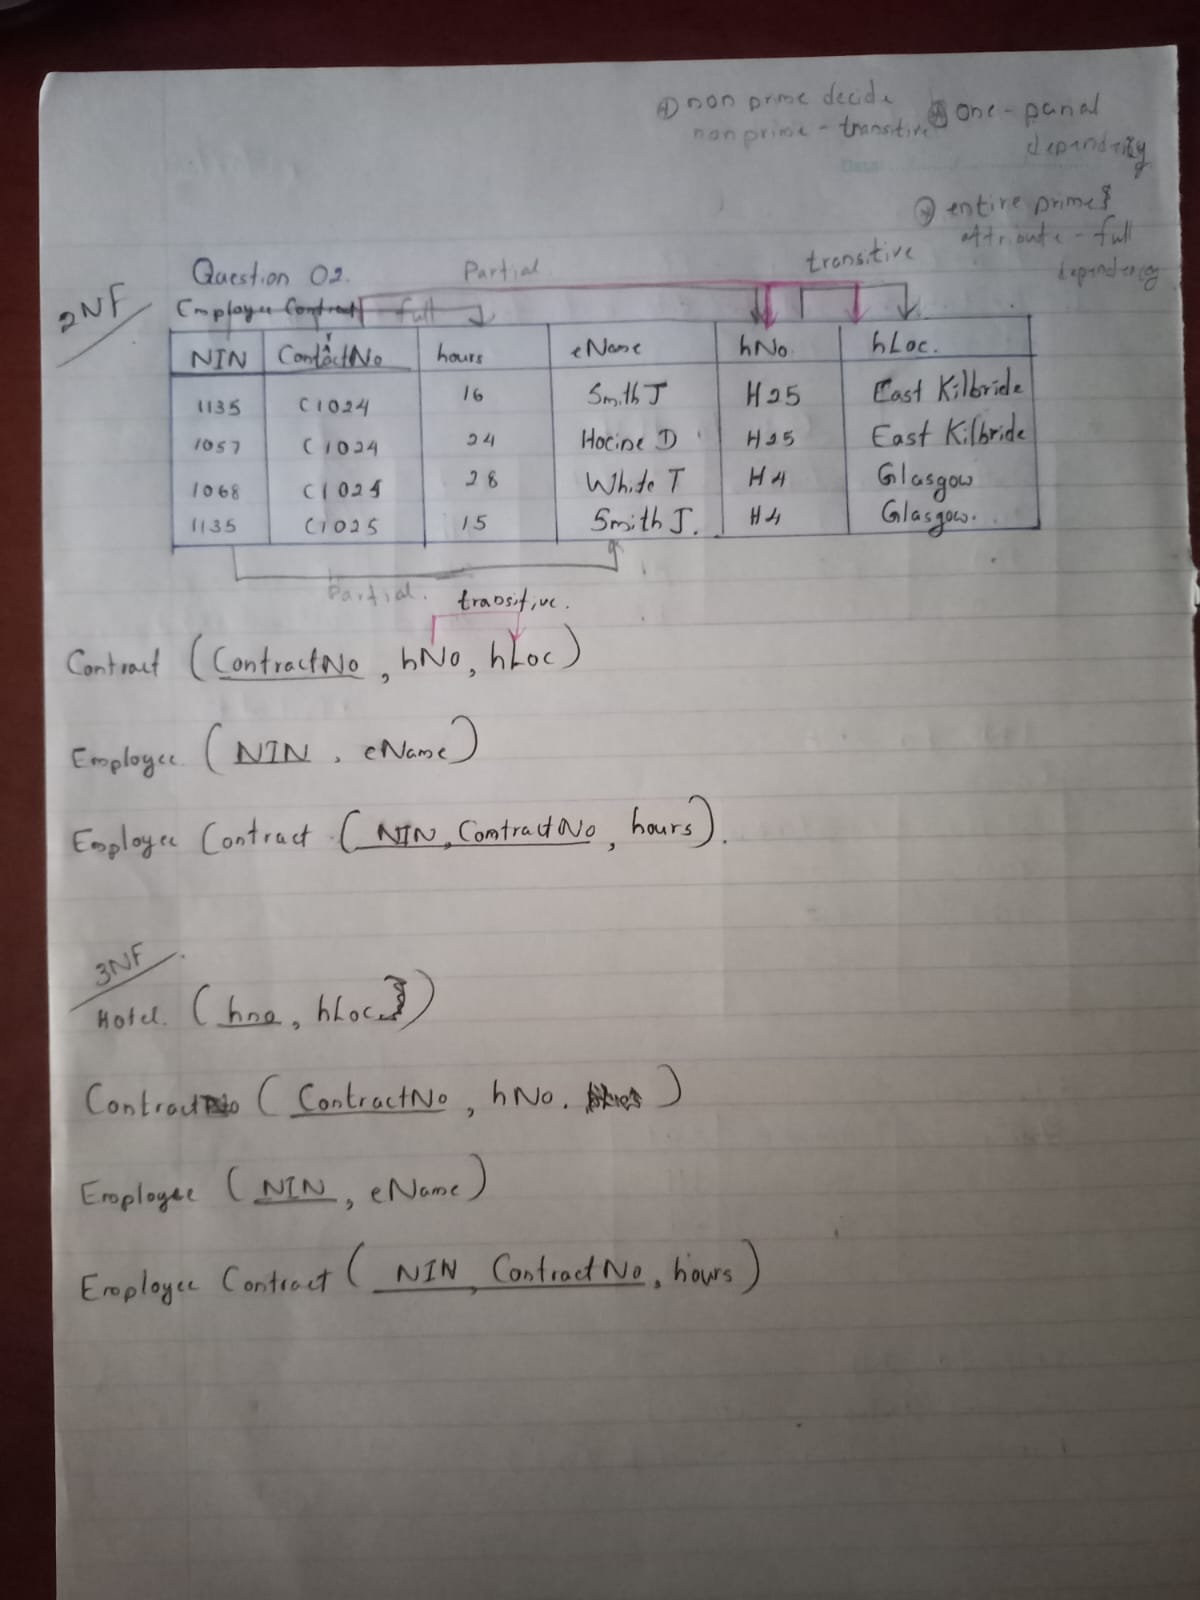 ⊕ non prime decide
nonprime - transitive
⊛ one - parial
dependecty
Date:
⊛ entire prime
attribute - full
dependency
transitive
Question 02.
Partial
2NF
Employee Contract
full
NIN ContactNo hours eName hNo hLoc.
1135 C1024 16 Smith J H25 East Kilbride
1057 C1024 24 Hocine D H25 East Kilbride
1068 C1025 28 White T H4 Glasgow
1135 C1025 15 Smith J. H4 Glasgow.
Partial.
transitive.
Contract (ContractNo, hNo, hLoc)
Employee (NIN, eName)
Employee Contract (NIN, ContractNo, hours).
3NF
Hotel. (hno, hLoc)
Contract (ContractNo, hNo. )
Employee (NIN, eName)
Employee Contract (NIN, ContractNo, hours)